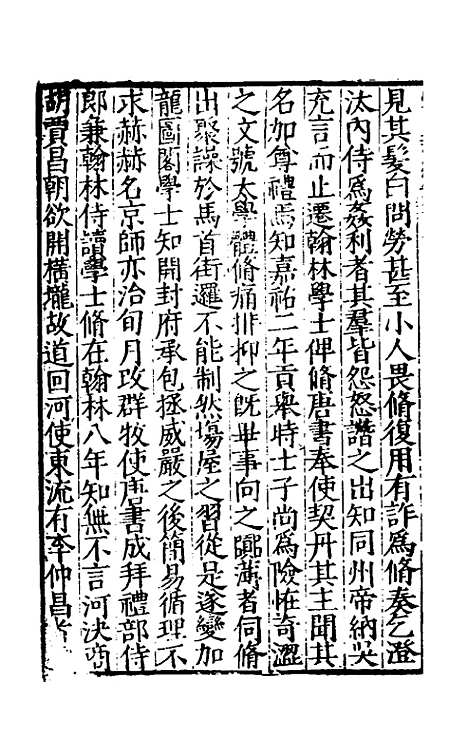 見其髮白問勞甚至小人畏脩復用有詐爲脩奏乞澄
汰内侍爲姦利者其羣皆怨怒譖之出知同州帝納吳
充言而止遷翰林學士俾脩唐書奉使契丹其主聞其
名加尊禮焉知嘉祐二年貢舉時士子尚爲險怪奇澀
之文號太學體脩痛排抑之既畢事向之囂薄者伺脩
出聚譟於馬首街邏不能制然塲屋之習從是遂變加
龍圖閣學士知開封府承包拯威嚴之後簡易循理不
求赫赫名京師亦治旬月改群牧使唐書成拜禮部侍
郎兼翰林侍讀學士脩在翰林八年知無不言河決商
胡賈昌朝欲開横壠故道回河使東流有李仲昌者